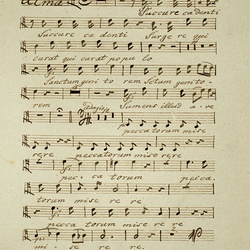 Alma
Succure ca denti
Succure ca denti Surge re qui
curat qui curat populo
Sanctum geni to rem Sctam genito-
rem Sumens illud a-ve
peccatorum mise
rere peccatorum mise rere
pec-catorum pecca
torum mise re re
peccatorum mise re re
mi-se re re.